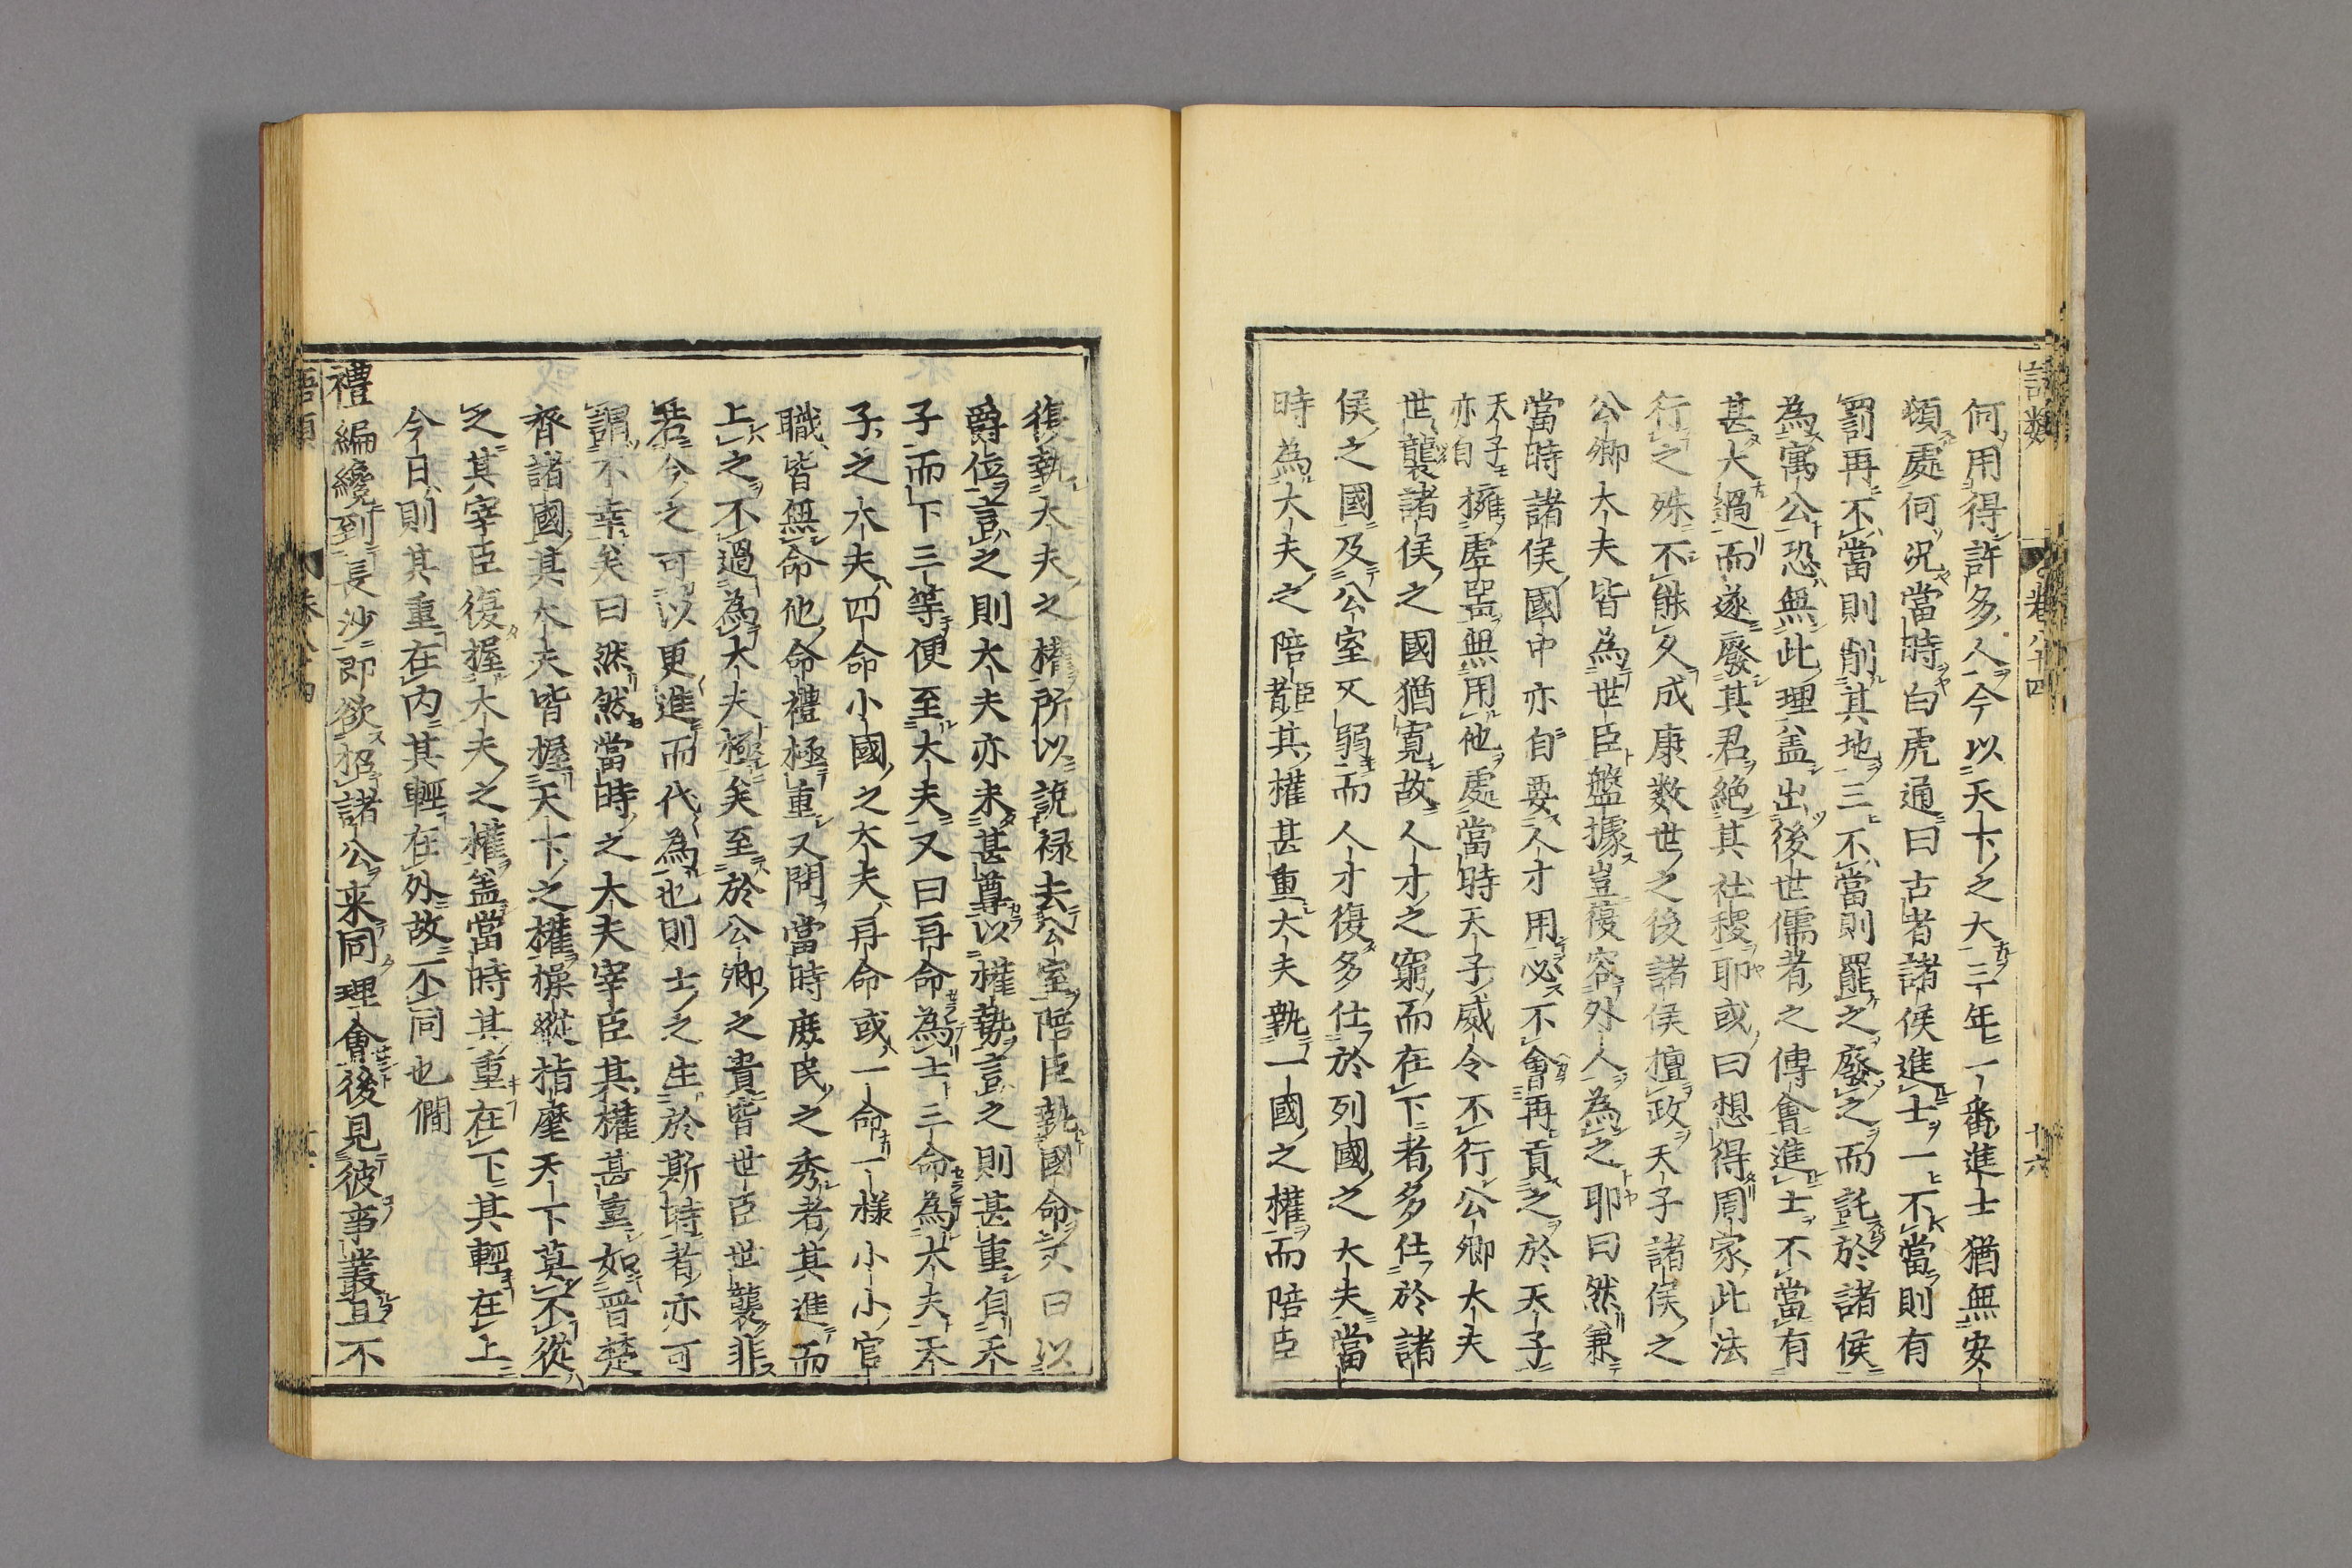 語類
卷八十四
十六
何用得許多人今以天下之大三年一番進士猶無安
頓處何況當時白虎通曰古者諸侯進士一不當則有
罰再不當則削其地三不當則罷之廢之而託於諸侯
為寓公恐無此理盖出後世儒者之傳會進士不當有
甚大過而遂廢其君絶其社稷耶或曰想得周家此法
行之殊不能久成康數世之後諸侯擅政天子諸侯之
公卿大夫皆為世臣盤據豈復容外人為之耶曰然兼
當時諸侯國中亦自要人才用必不會再貢之於天子
天子亦自擁虚噐無用他處當時天子威令不行公卿大夫
世襲諸侯之國猶寛故人才之窮而在下者多仕於諸
侯之國及公室又弱而人才復多仕於列國之大夫當
時為大夫之陪臣其權甚重大夫執一國之權而陪臣
復執大夫之權所以説禄去公室陪臣執國命又曰以
爵位言之則大夫亦未甚尊以權勢言之則甚重自天
子而下三等便至大夫又曰再命為士三命為大夫天
子之大夫四命小國之大夫再命或一命一様小小官
職皆無命他命禮極重又問當時庶民之秀者其進而
上之不過為大夫極矣至於公卿之貴皆世臣世襲非
若今之可以更進而代為也則士之生於斯時者亦可
謂不幸矣曰然然當時之大夫宰臣其權甚重如晉楚
齊諸國其大夫皆握天下之權操縱指麾天下莫不從
之其宰臣復握大夫之權盖當時其重在下其輕在上
今日則其重在内其輕在外故不同也僩
禮編纔到長沙即欲招諸公来同理會後見彼事叢且不